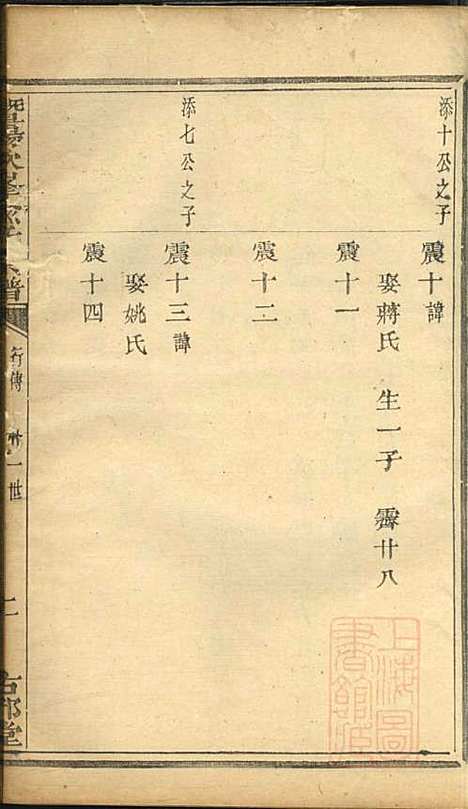 添十公之子
震十諱
娶蔣氏 生一子 霽廿八
震十一
震十二
添七公之子
震十三諱
娶姚氏
震十四
暨陽次峯 宗譜
行傳 廿一世
二
上海圖書館藏